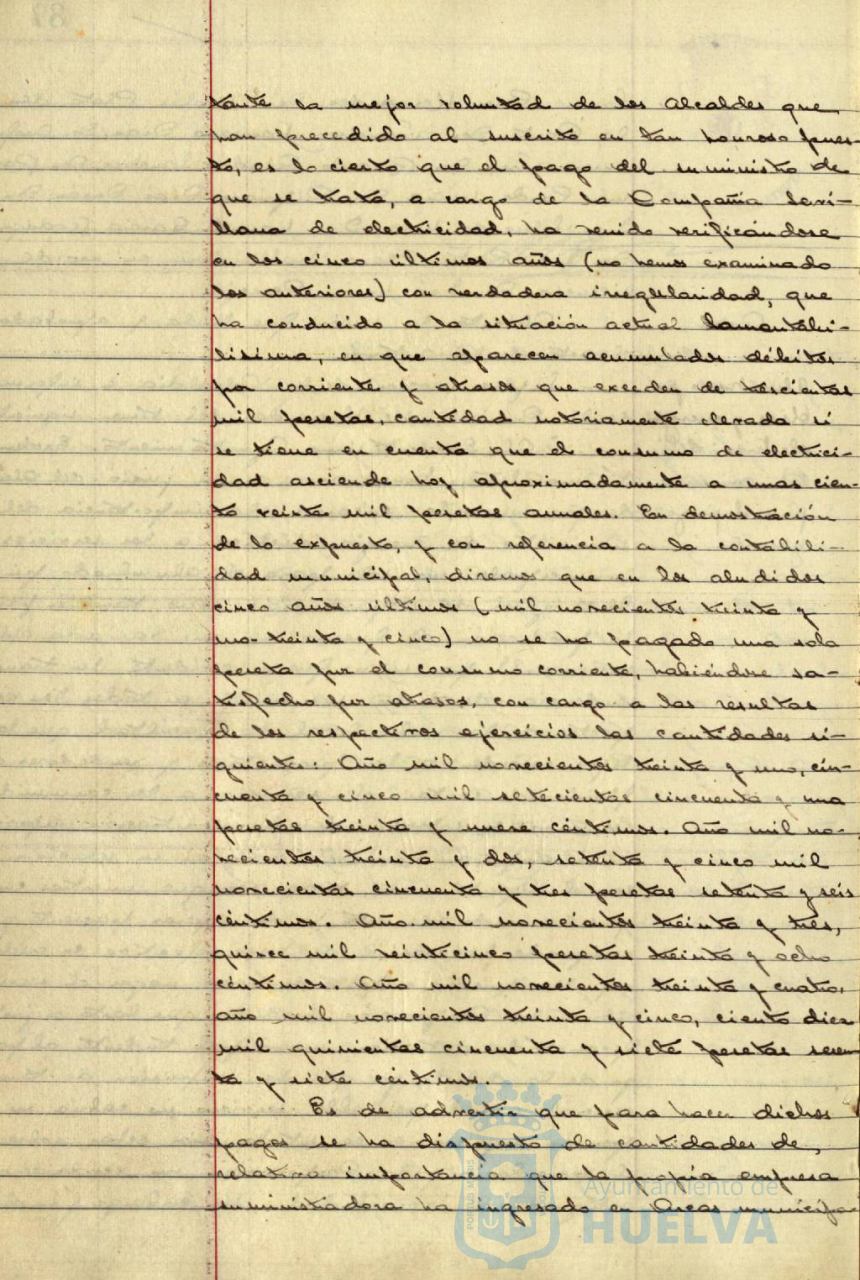 tante la mejor voluntad de los Alcaldes que
han precedido al suscrito en tan honroso pues-
to, es lo cierto que el pago del suministro de
que se trata, a cargo de la Compañía Sevi-
llana de electricidad, ha venido verificándose
en los cinco últimos años (no hemos examinado
los anteriores) con verdadera irregularidad, que
ha conducido a la situación actual lamentabi-
lísima, en que aparecen acumulados débitos
por corriente y atrasos que exceden de trescientas
mil pesetas, cantidad notoriamente elevada si
se tiene en cuenta que el consumo de electrici-
dad asciende hoy aproximadamente a unas cien-
to veinte mil pesetas anuales. En demostración
de lo expuesto, y con referencia a la contabili-
dad municipal, diremos que en los aludidos
cinco años últimos (mil novecientos treinta y
uno-treinta y cinco) no se ha pagado una sola
peseta por el consumo corriente, habiéndose sa-
tisfecho por atrasos, con cargo a las resultas
de los respectivos ejercicios las cantidades si-
guientes: Año mil novecientos treinta y uno, cin-
cuenta y cinco mil setecientas cincuenta y una
pesetas treinta y nueve céntimos. Año mil no-
vecientos treinta y dos, setenta y cinco mil
novecientas cincuenta y tres pesetas setenta y seis
céntimos. Año mil novecientos treinta y tres,
quince mil veinticinco pesetas treinta y ocho
céntimos. Año mil novecientos treinta y cuatro,
año mil novecientos treinta y cinco, ciento diez
mil quinientas cincuenta y siete pesetas
y siete céntimos.
Es de advertir que para hacer dichos
pagos se ha dispuesto de cantidades de
relativa importancia que la propia empresa
suministradora ha ingresado en Arcas municipa-
Ayuntamiento de
HUELVA